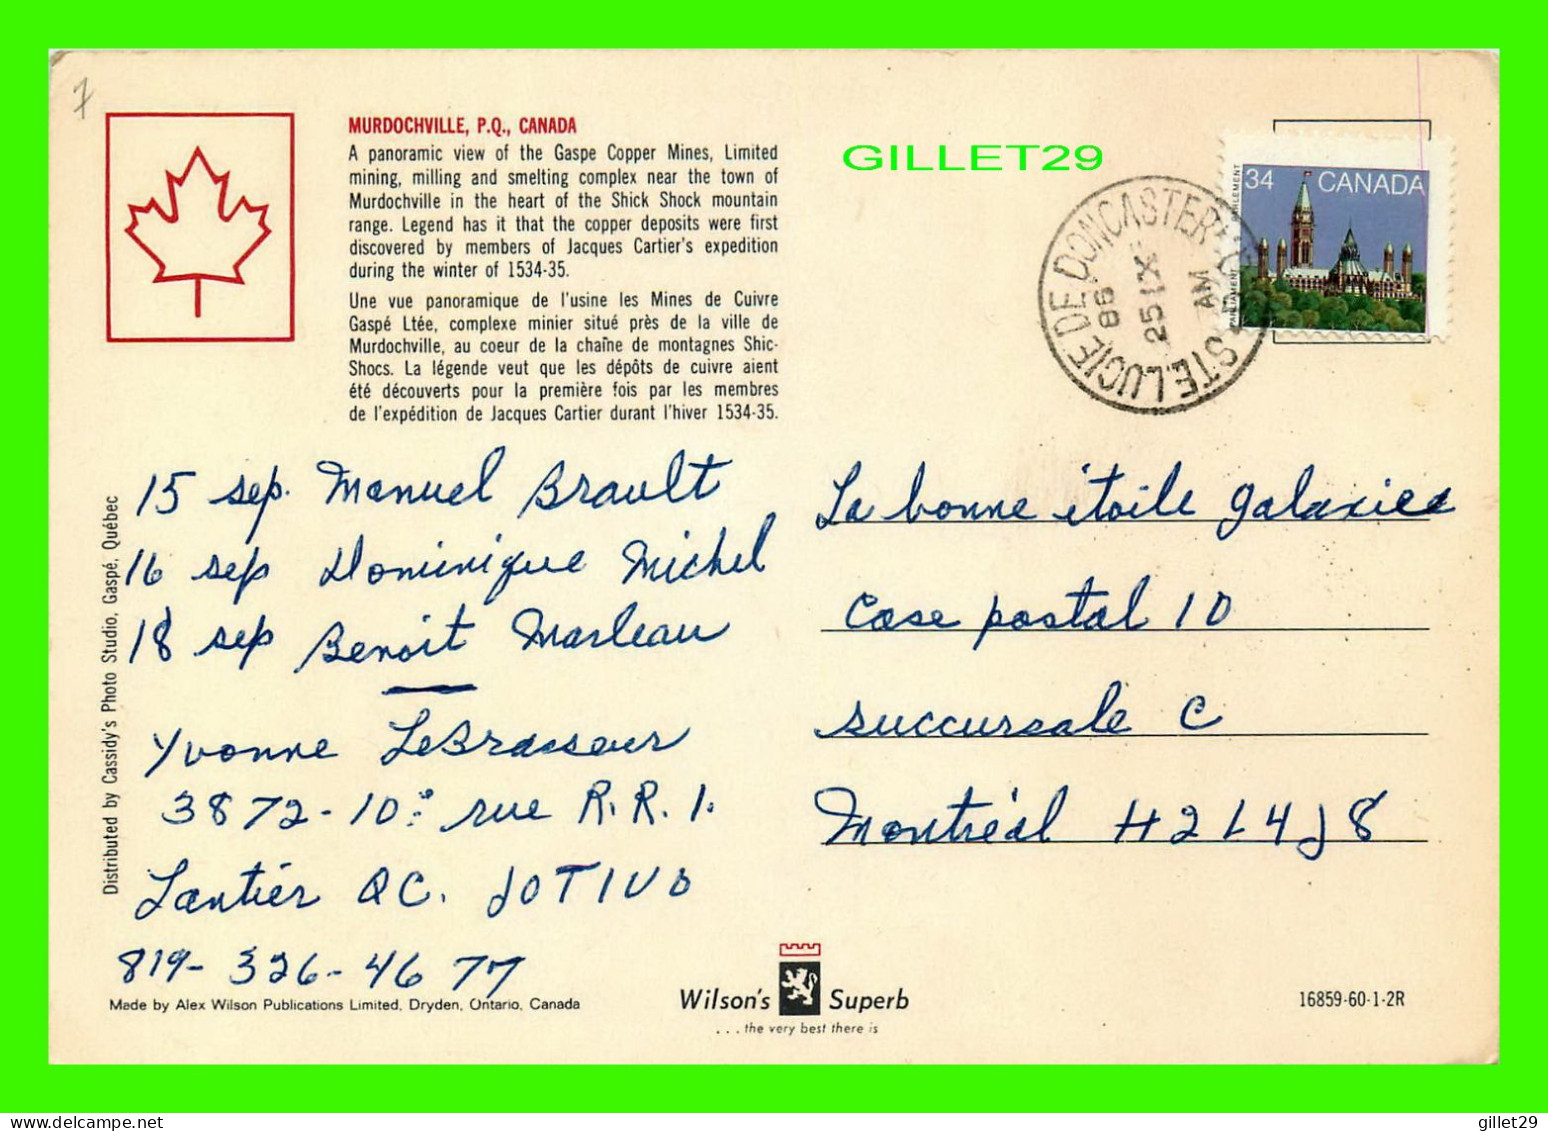 7
MURDOCHVILLE, P.Q., CANADA
A panoramic view of the Gaspe Copper Mines, Limited
mining, milling and smelting complex near the town of
Murdochville in the heart of the Shick Shock mountain
range. Legend has it that the copper deposits were first
discovered by members of Jacques Cartier's expedition
during the winter of 1534-35.
Une vue panoramique de l'usine les Mines de Cuivre
Gaspé Ltée, complexe minier situé près de la ville de
Murdochville, au coeur de la chaîne de montagnes Shic-
Shocs. La légende veut que les dépôts de cuivre aient
été découverts pour la première fois par les membres
de l'expédition de Jacques Cartier durant l'hiver 1534-35.
GILLET29
34 CANADA
PARLEMENT
PARLIAMENT
STE.LUCIE DE DONCASTER
86
25 IX
AM
15 sep. Manuel Brault
16 sep Dominique Michel
18 sep Benoit Marleau
Yvonne LeBrasseur
3872-10e rue R.R.1.
Lantier QC. J0T1V0
819-326-4677
La bonne étoile galaxie
Case postal 10
succursale C
Montréal H2L4J8
Distributed by Cassidy's Photo Studio, Gaspé, Québec
Made by Alex Wilson Publications Limited, Dryden, Ontario, Canada
Wilson's Superb
...the very best there is
16859-60-1-2R
gillet29